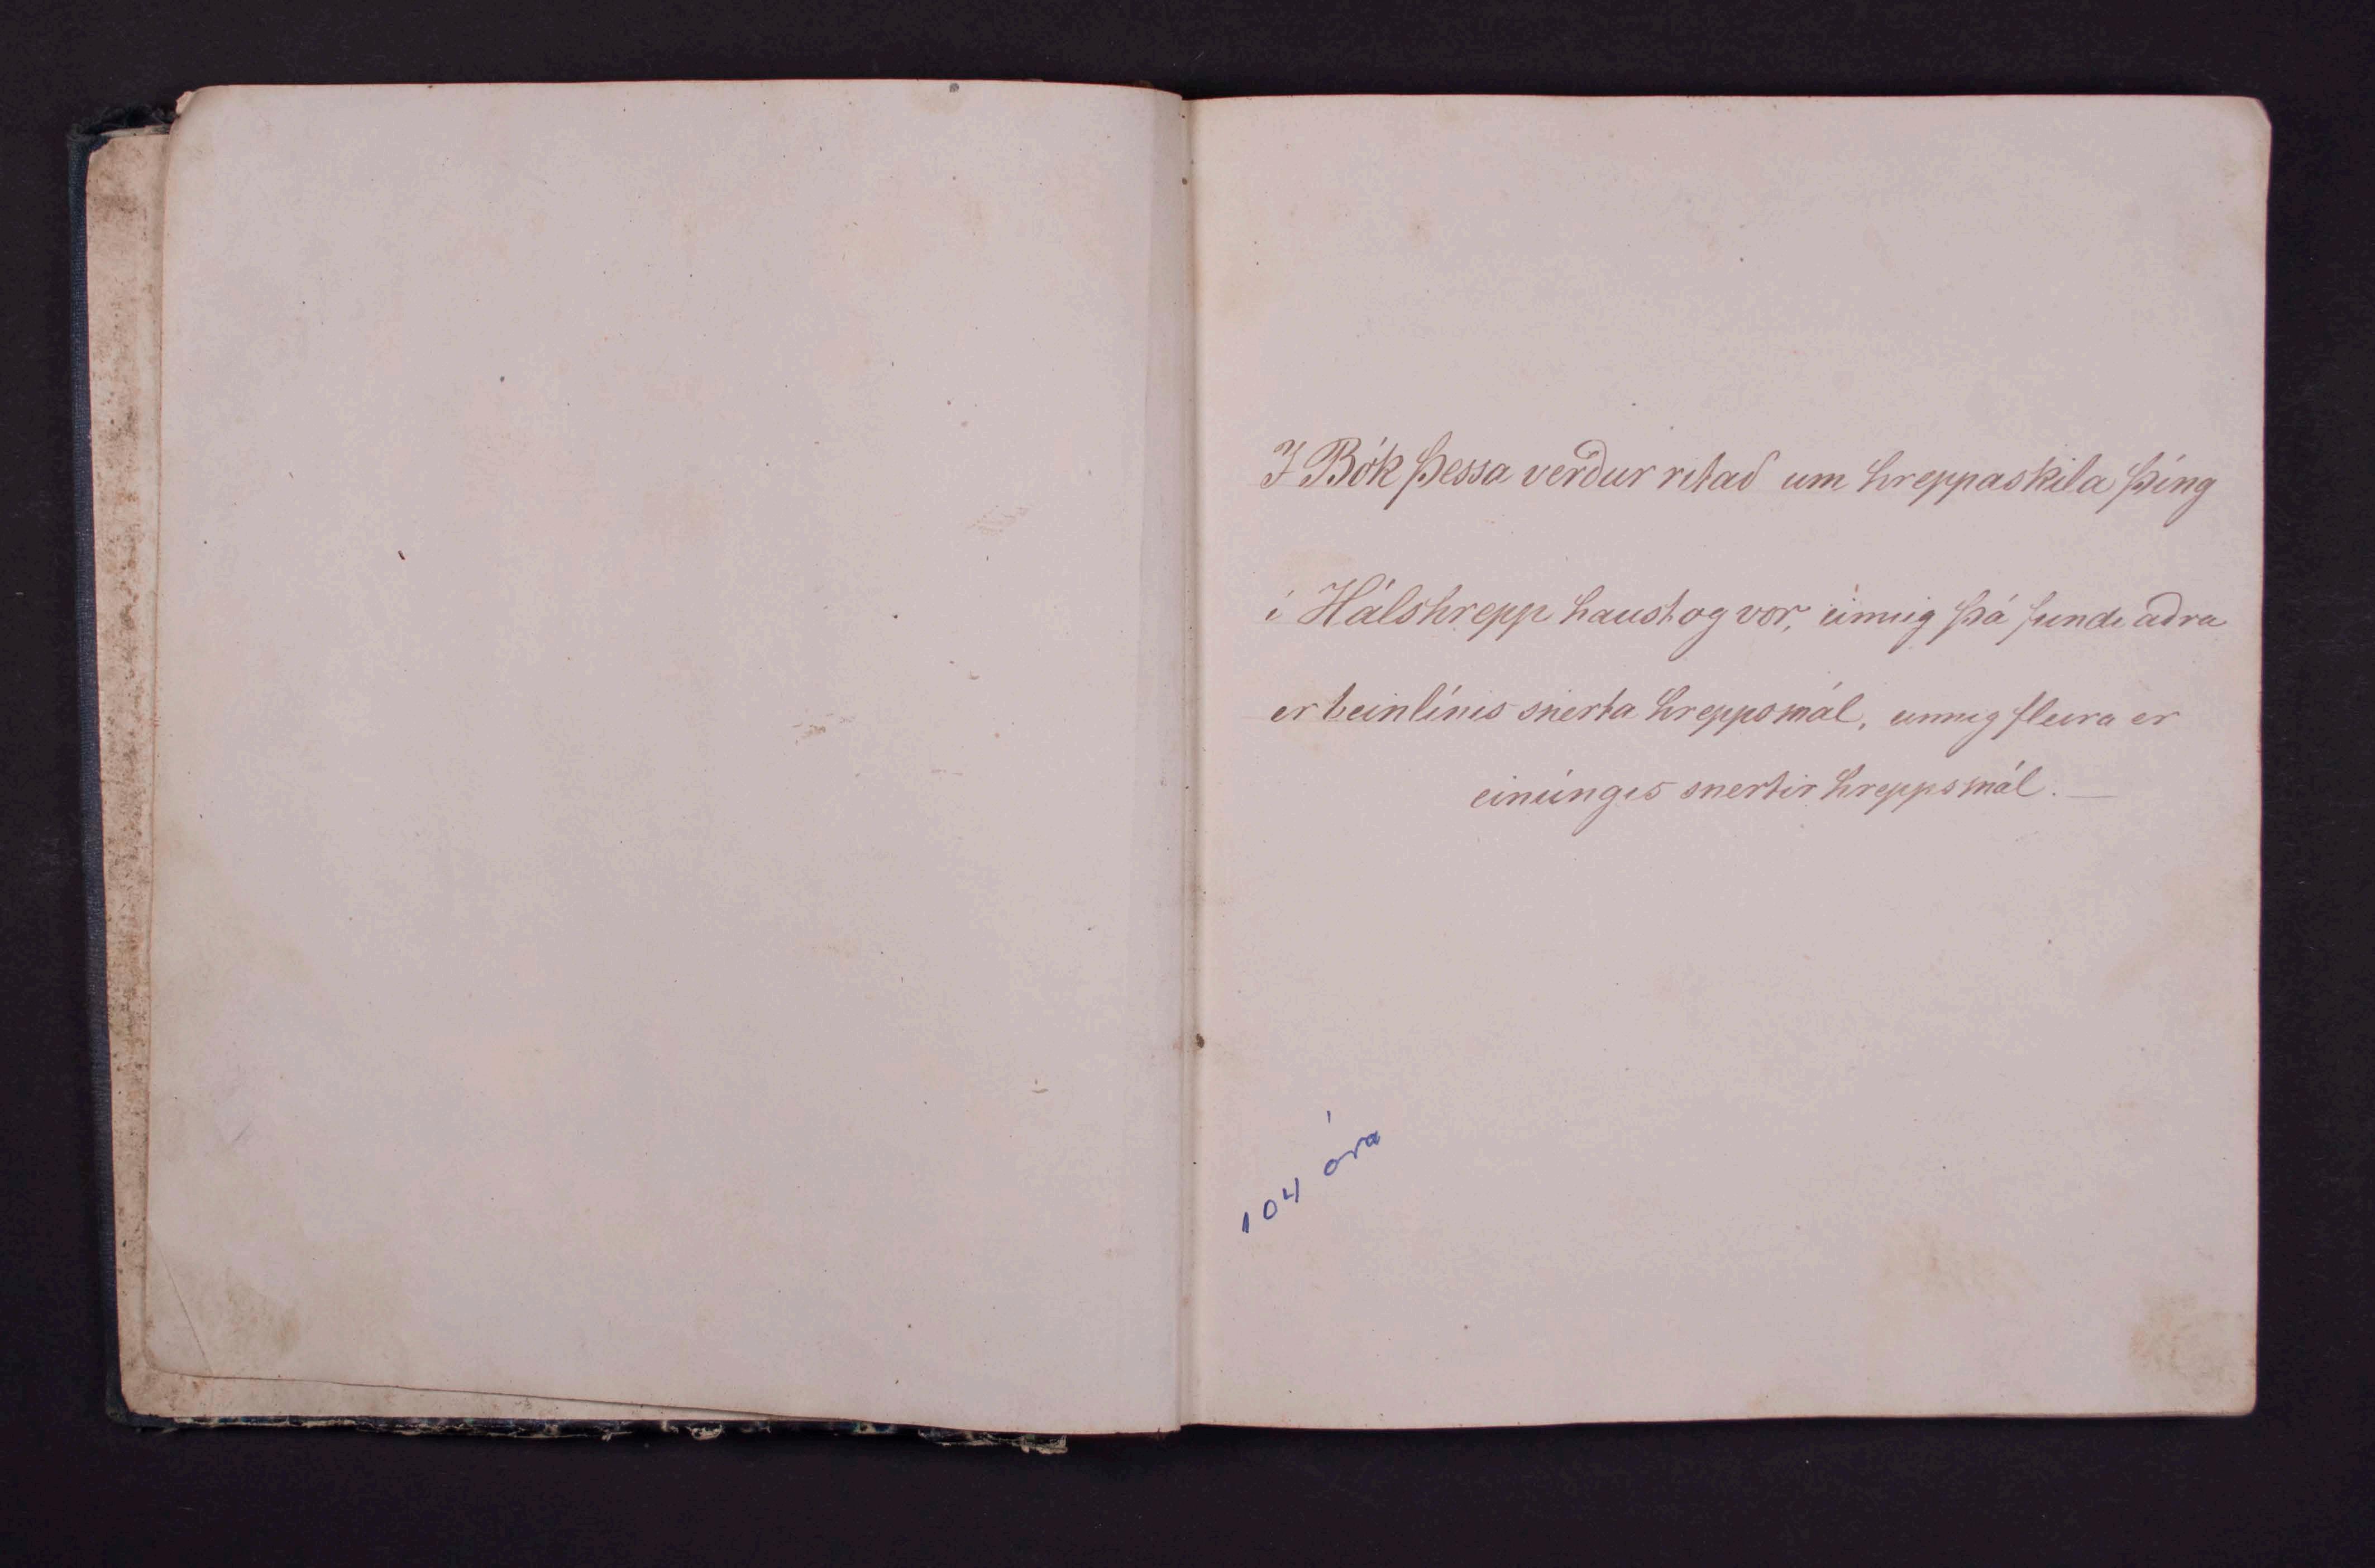 I Bók þessa verður ritað um hreppaskila þing
í Hálshrepp haust og vor, einnig þá fundi aðra
er beinlínis snerta hreppsmál, einnig fleira er
einúngis snertir hreppsmál. —
104 ára